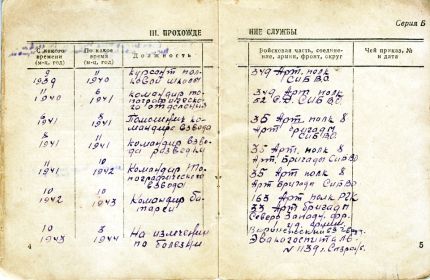 Серия Б
III. ПРОХОЖДЕ
НИЕ СЛУЖБЫ
С какого времени (м-ц, год)
По какое время (м-ц, год)
Должность
Войсковая часть, соединение, армия, фронт, округ
Чей приказ, № и дата
9 1939
11 1940
курсант полковой школы
349 Арт. полк СибВО
11 1940
6 1941
командир топографического отделения
349 Арт. полк
52 С.Д. СибВО
8 1941
Помощник командира взвода
35 Арт. полк 8
Арт Бригады СибВО
8 1941
11 1941
командир взвода разведки
35 Арт. полк 8
Арт. Бригады СибВО
1941
10 1942
командир Топографического взвода
35 Арт. полк 8
Арт Бригады СибВО
10 1942
10 1943
командир батареи
Арт полк РГК
Арт бригады
Северо Западн. фр.
1 уд. армии
10 1943
8 1944
На излечении по болезни
Эвакогоспиталь
N 1139
4
5